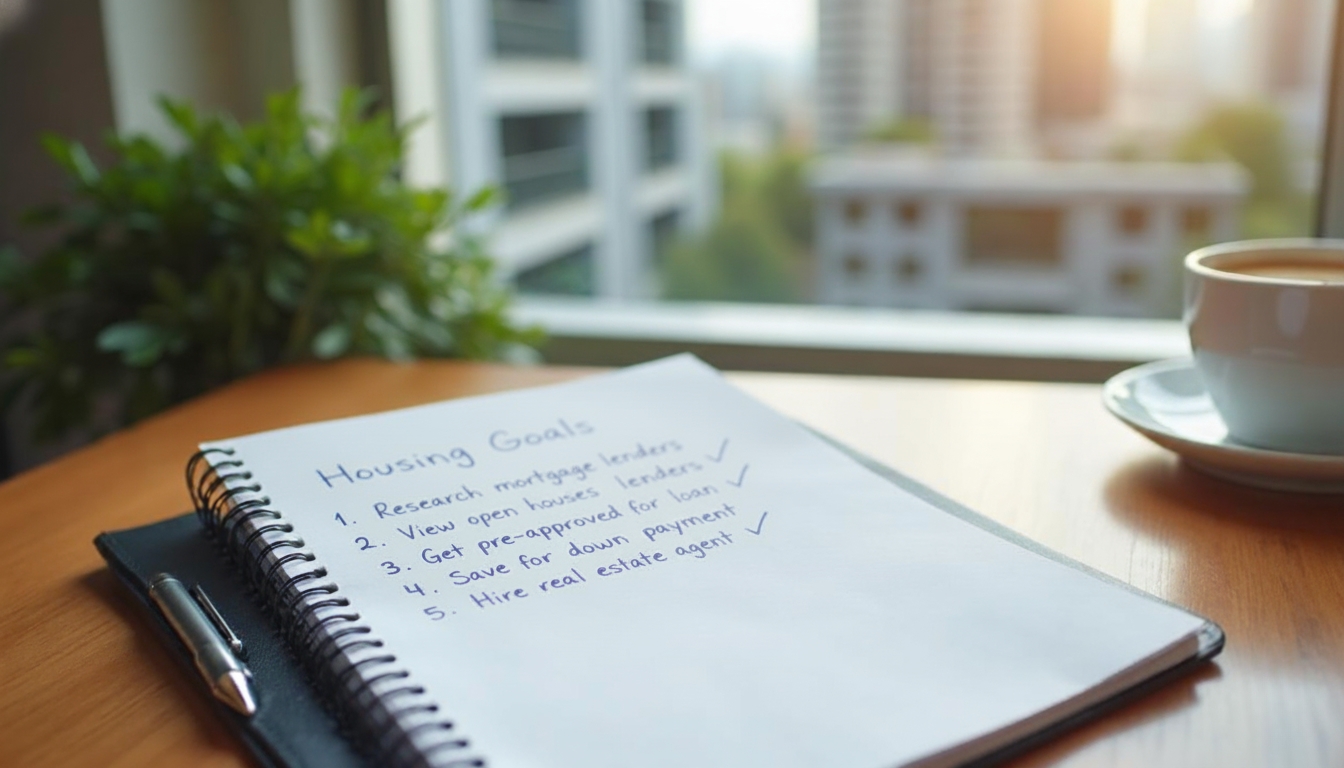 Housing Goals
1. Research mortgage lenders
2. View open houses lenders ✓
3. Get pre-approved for loan ✓
4. Save for down payment
5. Hire real estate agent ✓